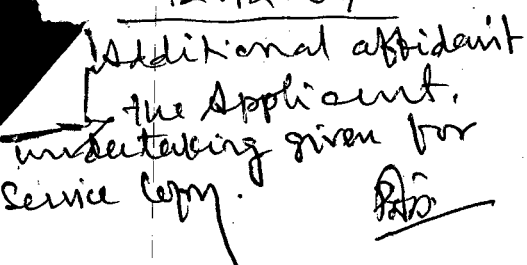 Additional affidavit
the Applicant.
undertaking given for
Service Copy.